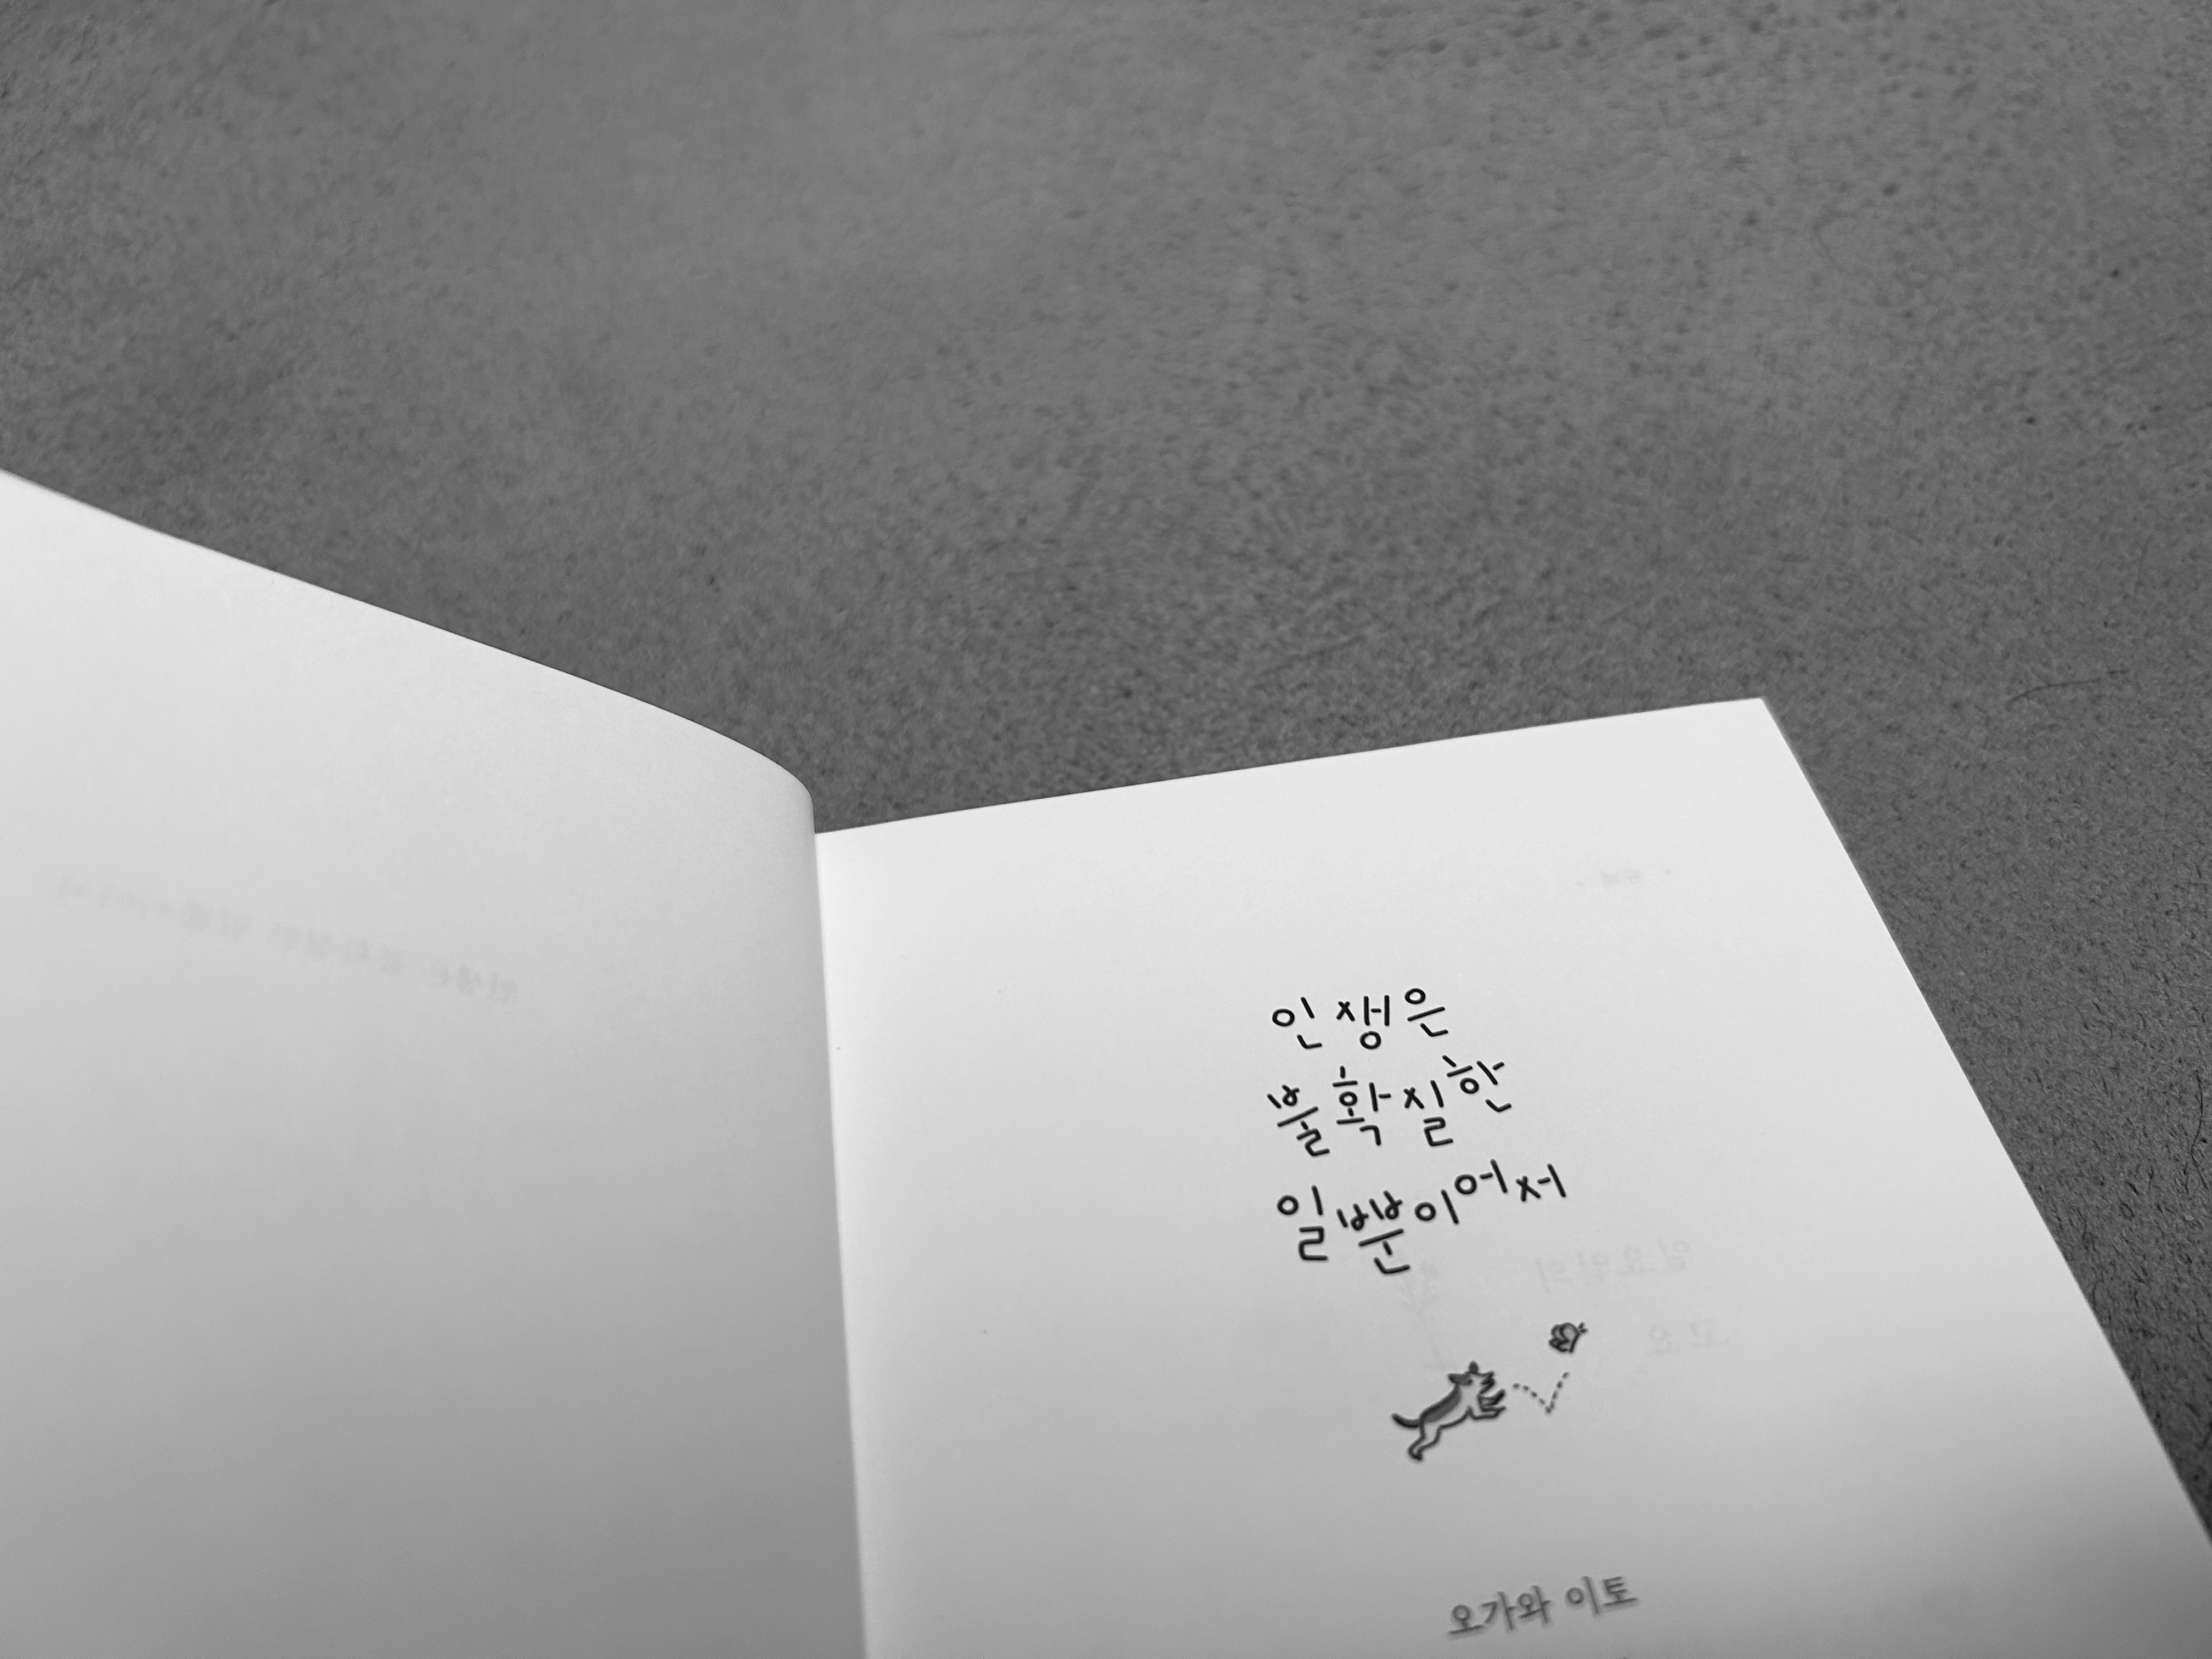 인생은
불확실한
일뿐이어서
오가와 이토